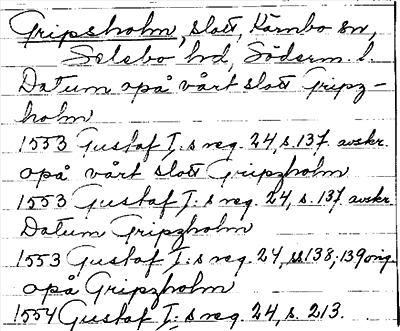 Gripsholm, slott, Kärnbo sn,
Selebo hd, Söderm. l.
Datum opå vårt slott Gripz-
holm
1553 Gustaf I:s reg. 24, s. 137. avskr.
opå vårt slott Gripzholm
1553 Gustaf I:s reg. 24, s. 137 avskr.
Datum Gripzholm
1553 Gustaf I:s reg. 24, ss 138, 139 orig.
opå Gripzholm
1554 Gustaf I:s reg. 24, s. 213.